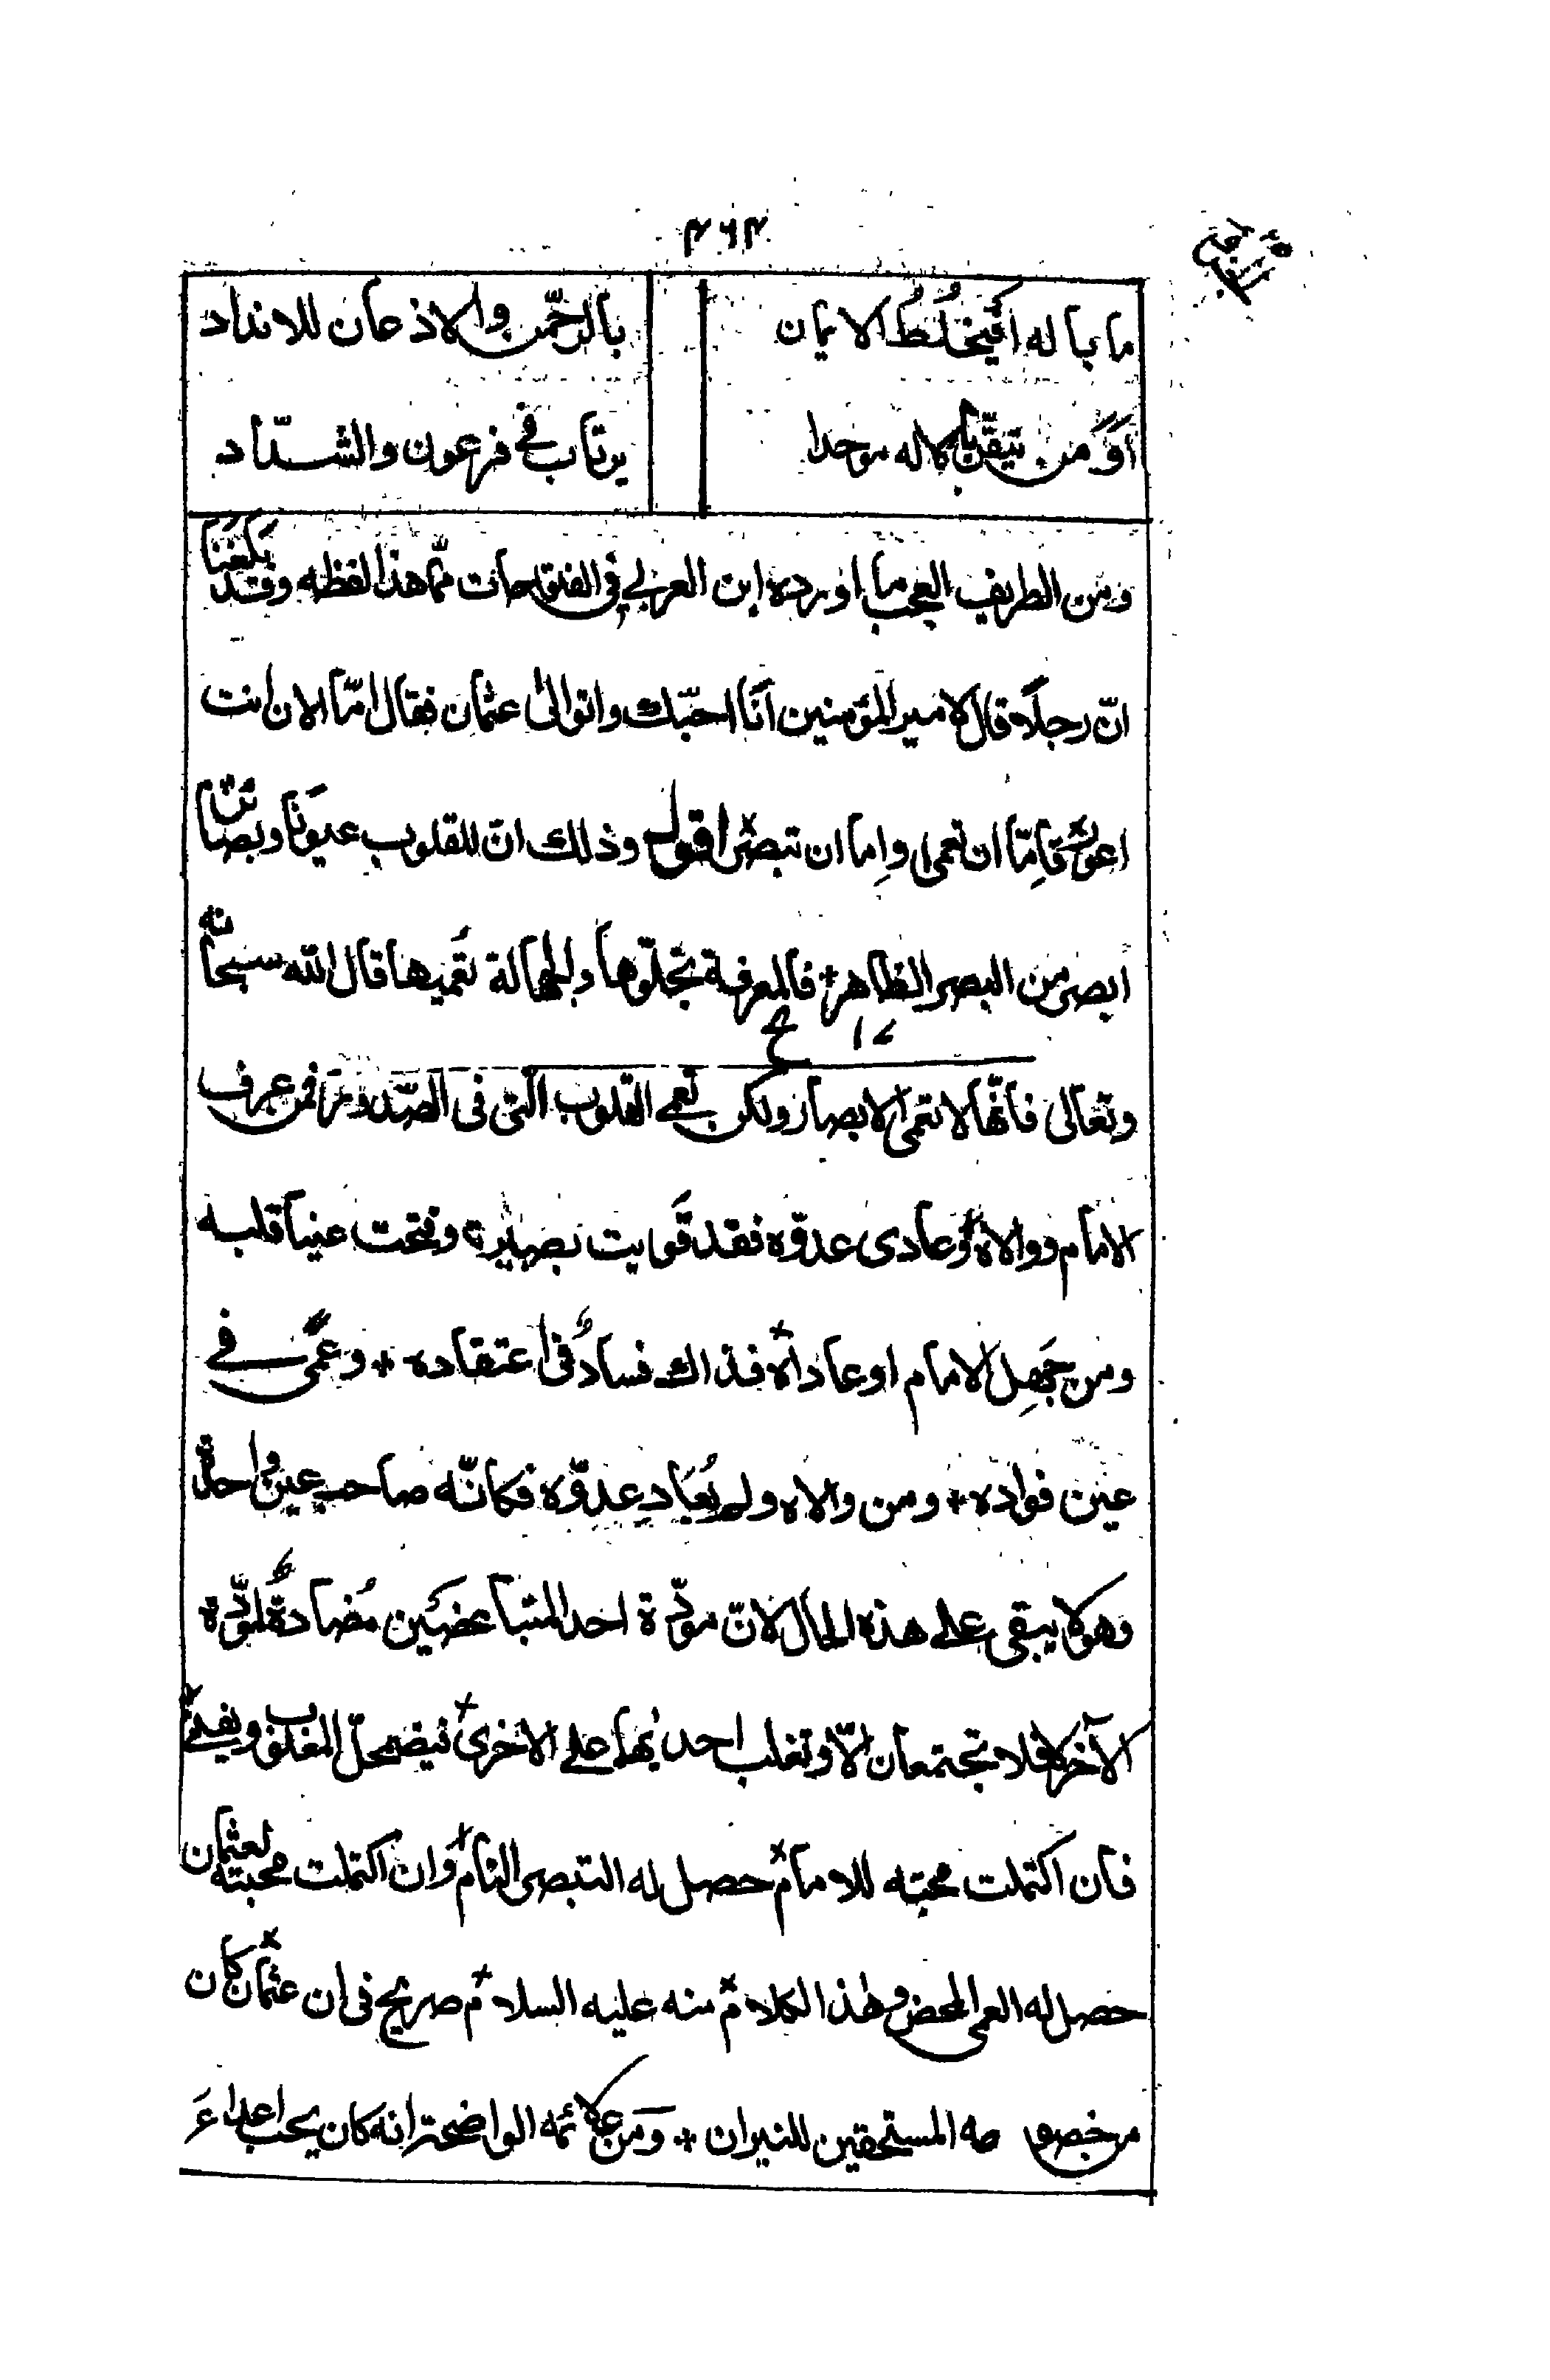 ٤٦٣
ما باله أيخلط الايمان بالرحمن والاذعان للانداد
أو من تيقن بالاله موحدا يرتاب في فرعون والشداد
ومن الطريف العجب ما اورده ابن العربي في الفتوحات مما هذا لفظه وقد بلغنا
انّ رجلاً قال لامير المؤمنين انا احبّك واتوالى عثمان فقال امّا الان انت
اعور فامّا ان تعمى واما ان تبصر اقول وذلك انّ للقلوب عيونا وبصائرنا
ابصر من البصر الظاهر فالمعرفة تجلّوها والجهالة تعميها قال الله سبحانه
١٧ ع
وتعالى فانّها لا تعمى الابصار ولكن تعمى القلوب الّتي فى الصّدور فمن عرف
الامام ووالاه وعادى عدوّه فقد قويت بصيرته وفتحت عينا قلبه
ومن جهل الامام او عاداه فذاك فساد فى اعتقاده + وعمى في
عين فواده + ومن والاه ولم يُعاد عدوّه فكانّه صاحب عين واحدة
وهو لا يبقى على هذه الحال لانّ مودّة احد المتباغضين مُضادة لمودّة
الآخر فلا تجتمعان الّا وتغلب احديهما على الاخرى فيضمحلّ المغلوب ويفنى
فان اكتملت محبته للامام حصل له التبصر التام وان اكتملت محبته لعثمان
حصل له العمى المحض وهذا الكلام منه عليه السلام صريح فى ان عثمان كان
من خصومه المستحقين للنيران + ومن علائمه الواضحة انه كان يحب اعداء